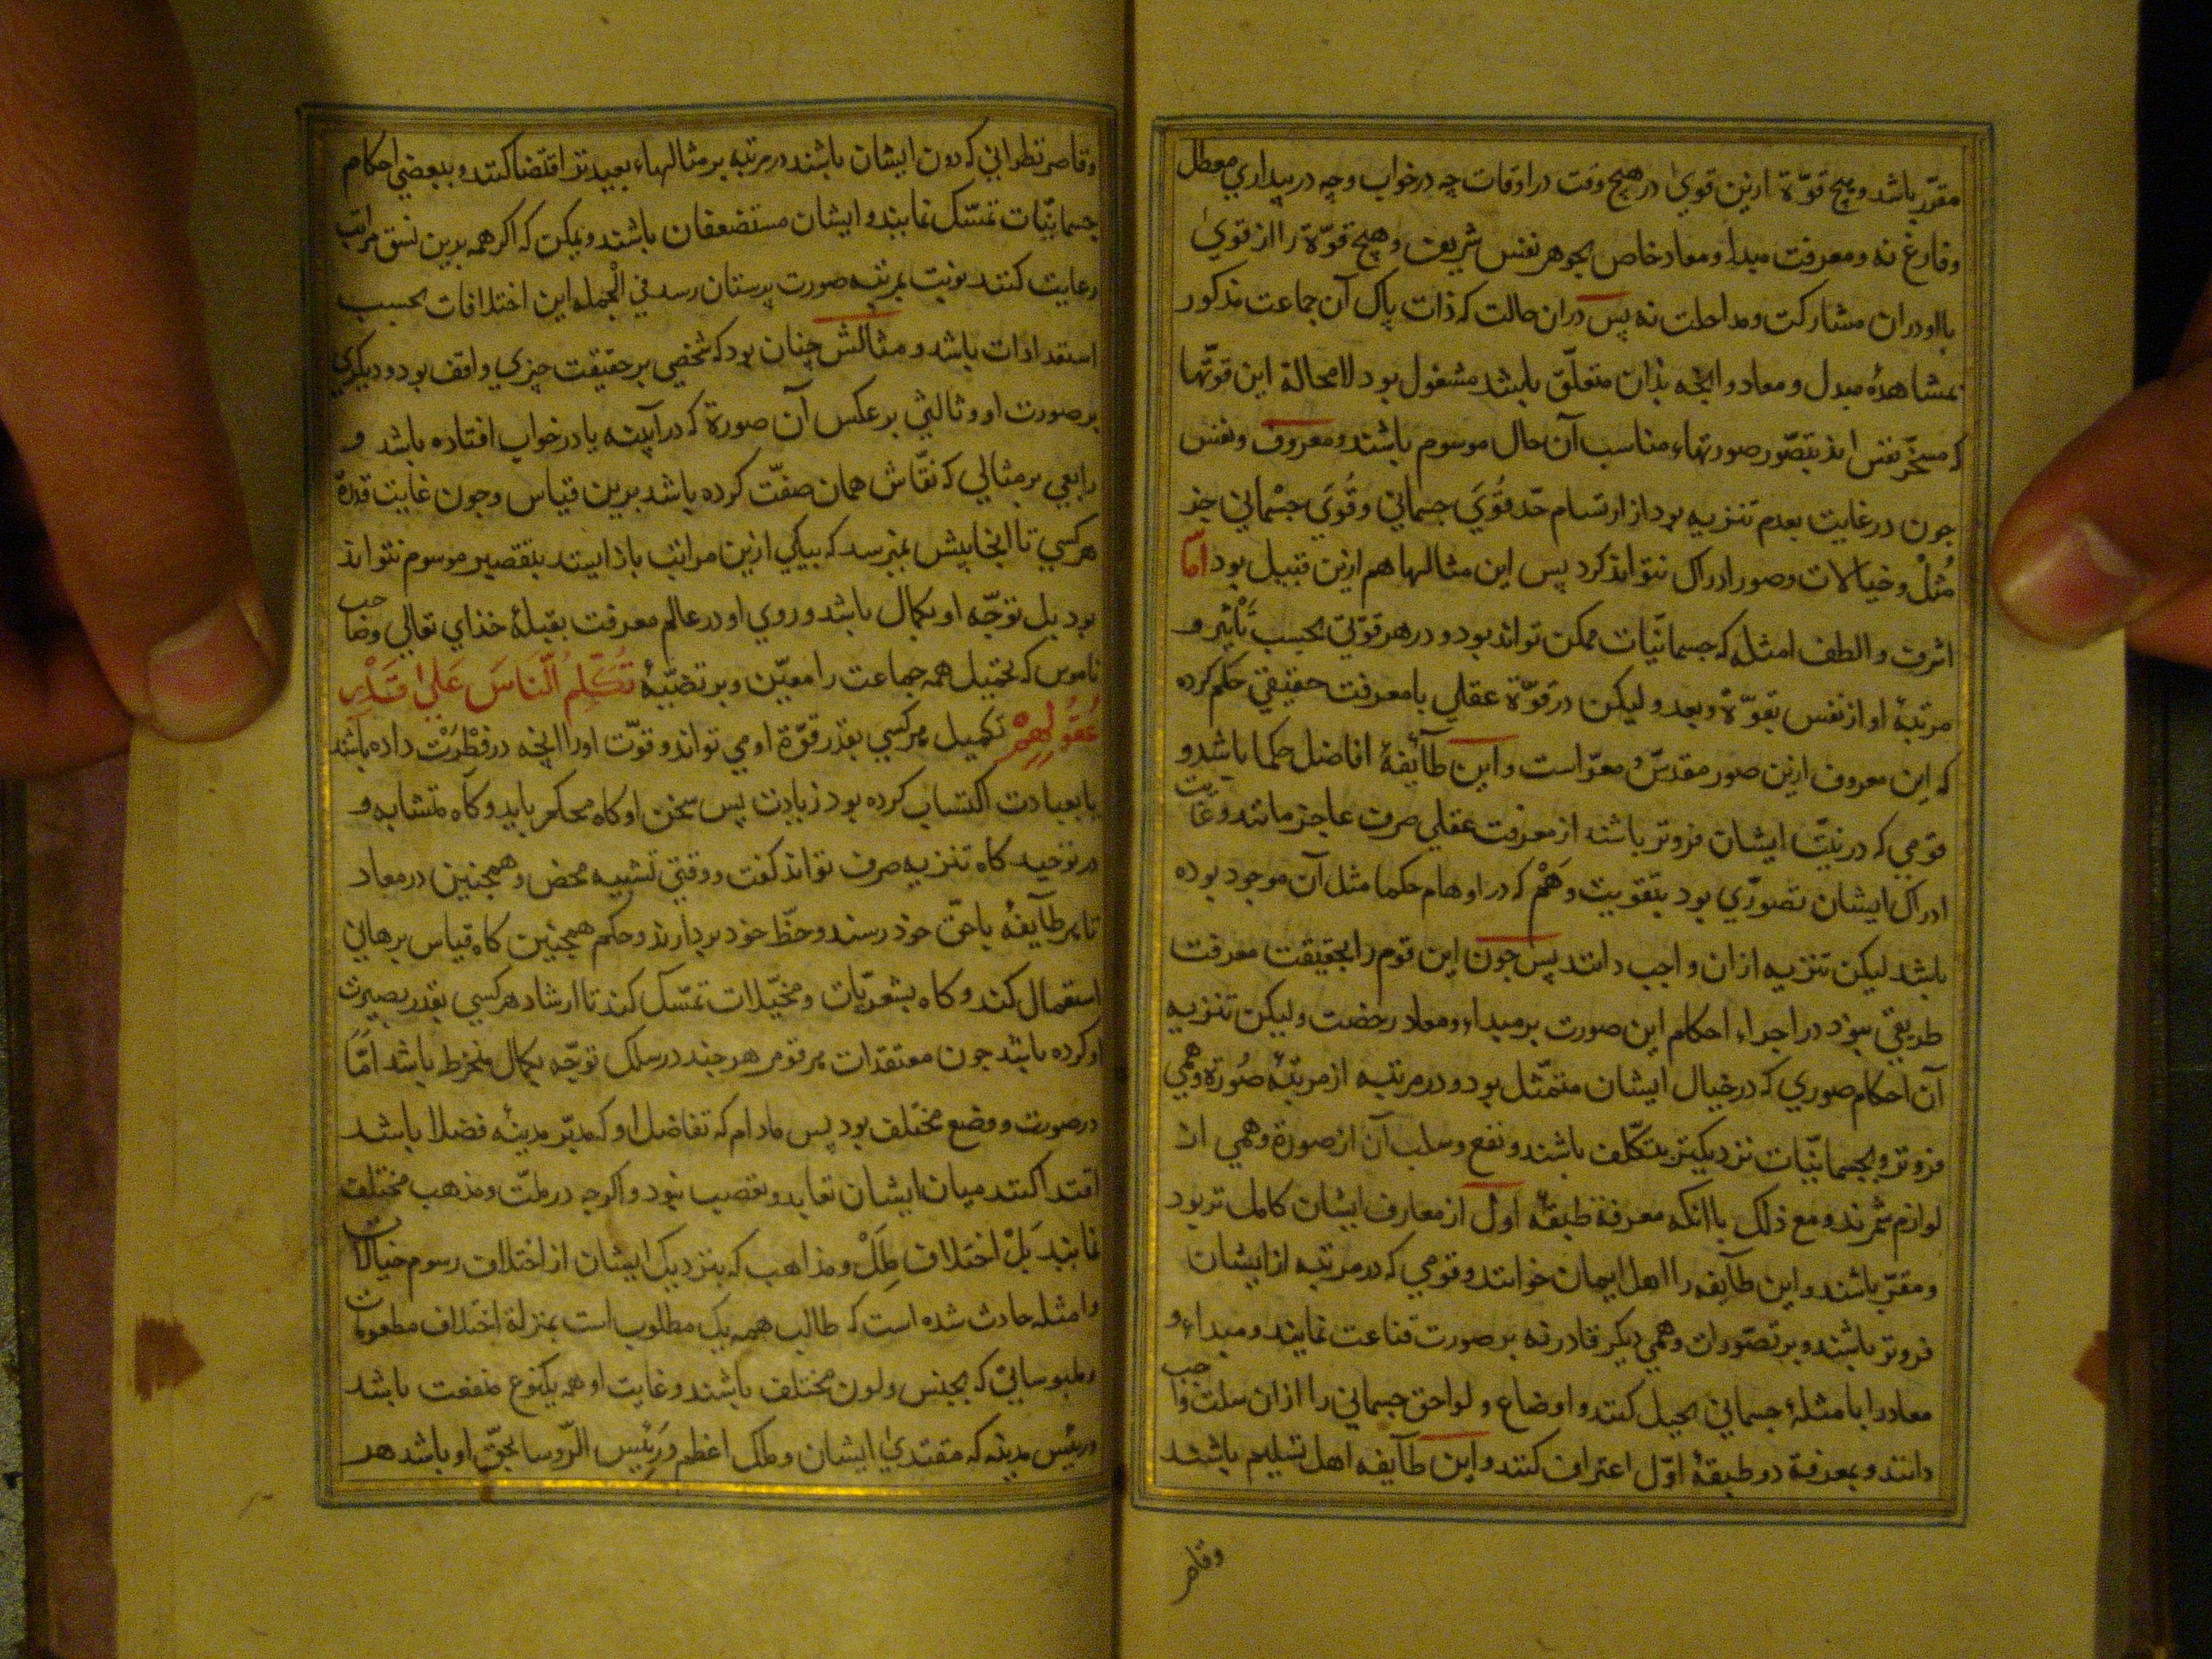 مقرّر باشد و هیچ قوّة ازین قویٰ در هیچ وقت در اوقات چه در خواب و چه در بیداری معطل
و فارغ نه و معرفت مبداء و معاد خاص بجوهر نفس شریف و هیچ قوّة را از قویٰ
با او دران مشارکت و مداخلت نه پس دران حالت که ذات پاک آن جماعت مذکور
بمشاهدهٔ مبدل و معاد و آنچه بذان متعلّق باشد مشغول بود لا محالة این قوّتها
که مسخّر نفس اند بتصّور صورتهاء مناسب آن حال موسوم باشند و معروف و نفس
جون در غایت بعدم تنزیه بود از ارتسام حدّ قُوَّي جسماني و قُوَّي جسْمانی جز
مُثُلْ و خیالات و صور ادراک نتواند کرد پس این مثالها هم ازین قبیل بود امّا
اشرف و الطف امثله که جسمانیّات ممکن تواند بود و در هر قوّتی بحسب تأثیر و
مرتبهٔ او از نفس بقوّة و بعد و لیکن در قوّة عقلي با معرفت حقیقي حکم کرده
که این معروف ازین صور مقدّس و معرّا است و این طآیفهٔ افاضل حکما باشد و
قومي که در نیّت ایشان فروتر باشند از معرفت عقلي صرف عاجز مانند و غایت
ادراک ایشان تصوّري بود بتقویت وَهْم که در اوهام حکما مثل آن موجود بوده
باشد لیکن تنزیه ازان واجب دانند پس جون این قوم را بحقیقت معرفت
طریقي نبود در اجراء احکام این صورت بر مبداء و معاد رخصت و لیکن تنزیه
آن احکام صوري که در خیال ایشان متمّثل بود و در مرتبه از مرتبهٔ صُورة وهمي
فروتر و بجسمانیّات نزدیکتر بتکلّف باشند و نفع و سلب آن از صورة وهمي از
لوازم شمرند و مع ذلک با آنکه معرفة طبقهٔ اول از معارف ایشان کامل تر بود
و مقرّ باشند و این طآیفه را اهل ایمان خوانند و قومي که در مرتبه از ایشان
فروتر باشند و بر تصوّرات وهمي دیکر قادر نه بر صورت قناعت نمایند و مبداء و
معاد را بامثلهٔ جسماني بحیل کنند و اوضاع و لواحق جسماني را ازان سلت واجب
دانند و بمعرفة دو طبقهٔ اوّل اعتراف کنند و این طآیفه اهل تسلیم باشند
وقاصر
و قاصر نظرانی که دون ایشان باشند در مرتبه بر مثالهاء بعیدتر اقتضا کنند و ببعضي احکام
جسمانیّات تمسّک نمایند و ایشان مستضعفان باشند و یمکن که اکر همه برین نسق مراتب
رعایت کنند نوبت بمرتبه صورت پرستان رسد في الجمله این اختلافات بحسب
استعدادات باشد و مثالش چنان بود که شخصي بر حقیقت چیزي واقف بود و دیکري
بر صورت او و ثالثي بر عکس آن صورة که در آیینه یا در خواب افتاده باشد و
رابعي بر مثالي که نقّاش همان صفّت کرده باشد برین قیاس و جون غایت قدرة
هر کسي تا انجا بیش نمیرسد که بیکي ازین مراتب باز ایستد بتقصیر موسوم نتواند
بود بل توجّه او بکمال باشد و روي او در عالم معرفت بقبلهٔ خذای تعالي و صاحب
ناموس که تحمیل همه جماعت را معیّن و بر تضیّیهٔ تُکَلِّمُ النّاسَ عَلیٰ قَدْرِ
عُقُولِهِمْ تکمیل هر کسي بقدر قوّة او می تواند و قوّت او را آنچه در فِطْرَتْ داده باشند
یا بعبادت اکتساب کرده بود زیادت پس سخن او کاه محکم باید و کاه متشابه و
در توحید کاه تنزیه صرف تواند کفت و وقتي تشبیه محض و همچنین در معاد
تا هر طآیفهٔ باحق خود رسند و حظّ خود بردارند و حکم همچنین کاه قیاس برهاني
استعمال کند و کاه بشعریّات و مخیّلات تمسّک کند تا ارشاد هر کسي بقدر بصیرت
او کرده باشد جون معتقدات هر قوم هر چند در سلک توجّه بکمال منخرط باشد امّا
در صورت و وضع مختلف بود پس مادام که تفاضل او که مدبّر مدینهٔ فضلا باشد
اقتدا کنند میان ایشان تعاند و تعصب نبود و اکرچه در ملّت و مذهب مختلف
نمایند بَلْ اختلاف مِلَلْ و مذاهب که بنزدیک ایشان از اختلاف رسوم خیالات
و امثله حادث شده است که طالب همه یک مطلوب است بمنزلة اختلاف مطعومات
و ملبوساتي که بجنس و لون مختلف باشند و غایت او همه یکنوع منفعت باشد
و رئیس مدینه که مقتدي ایشان و ملک اعظم و رَئیس الرّوسا بحقّ او باشد هر